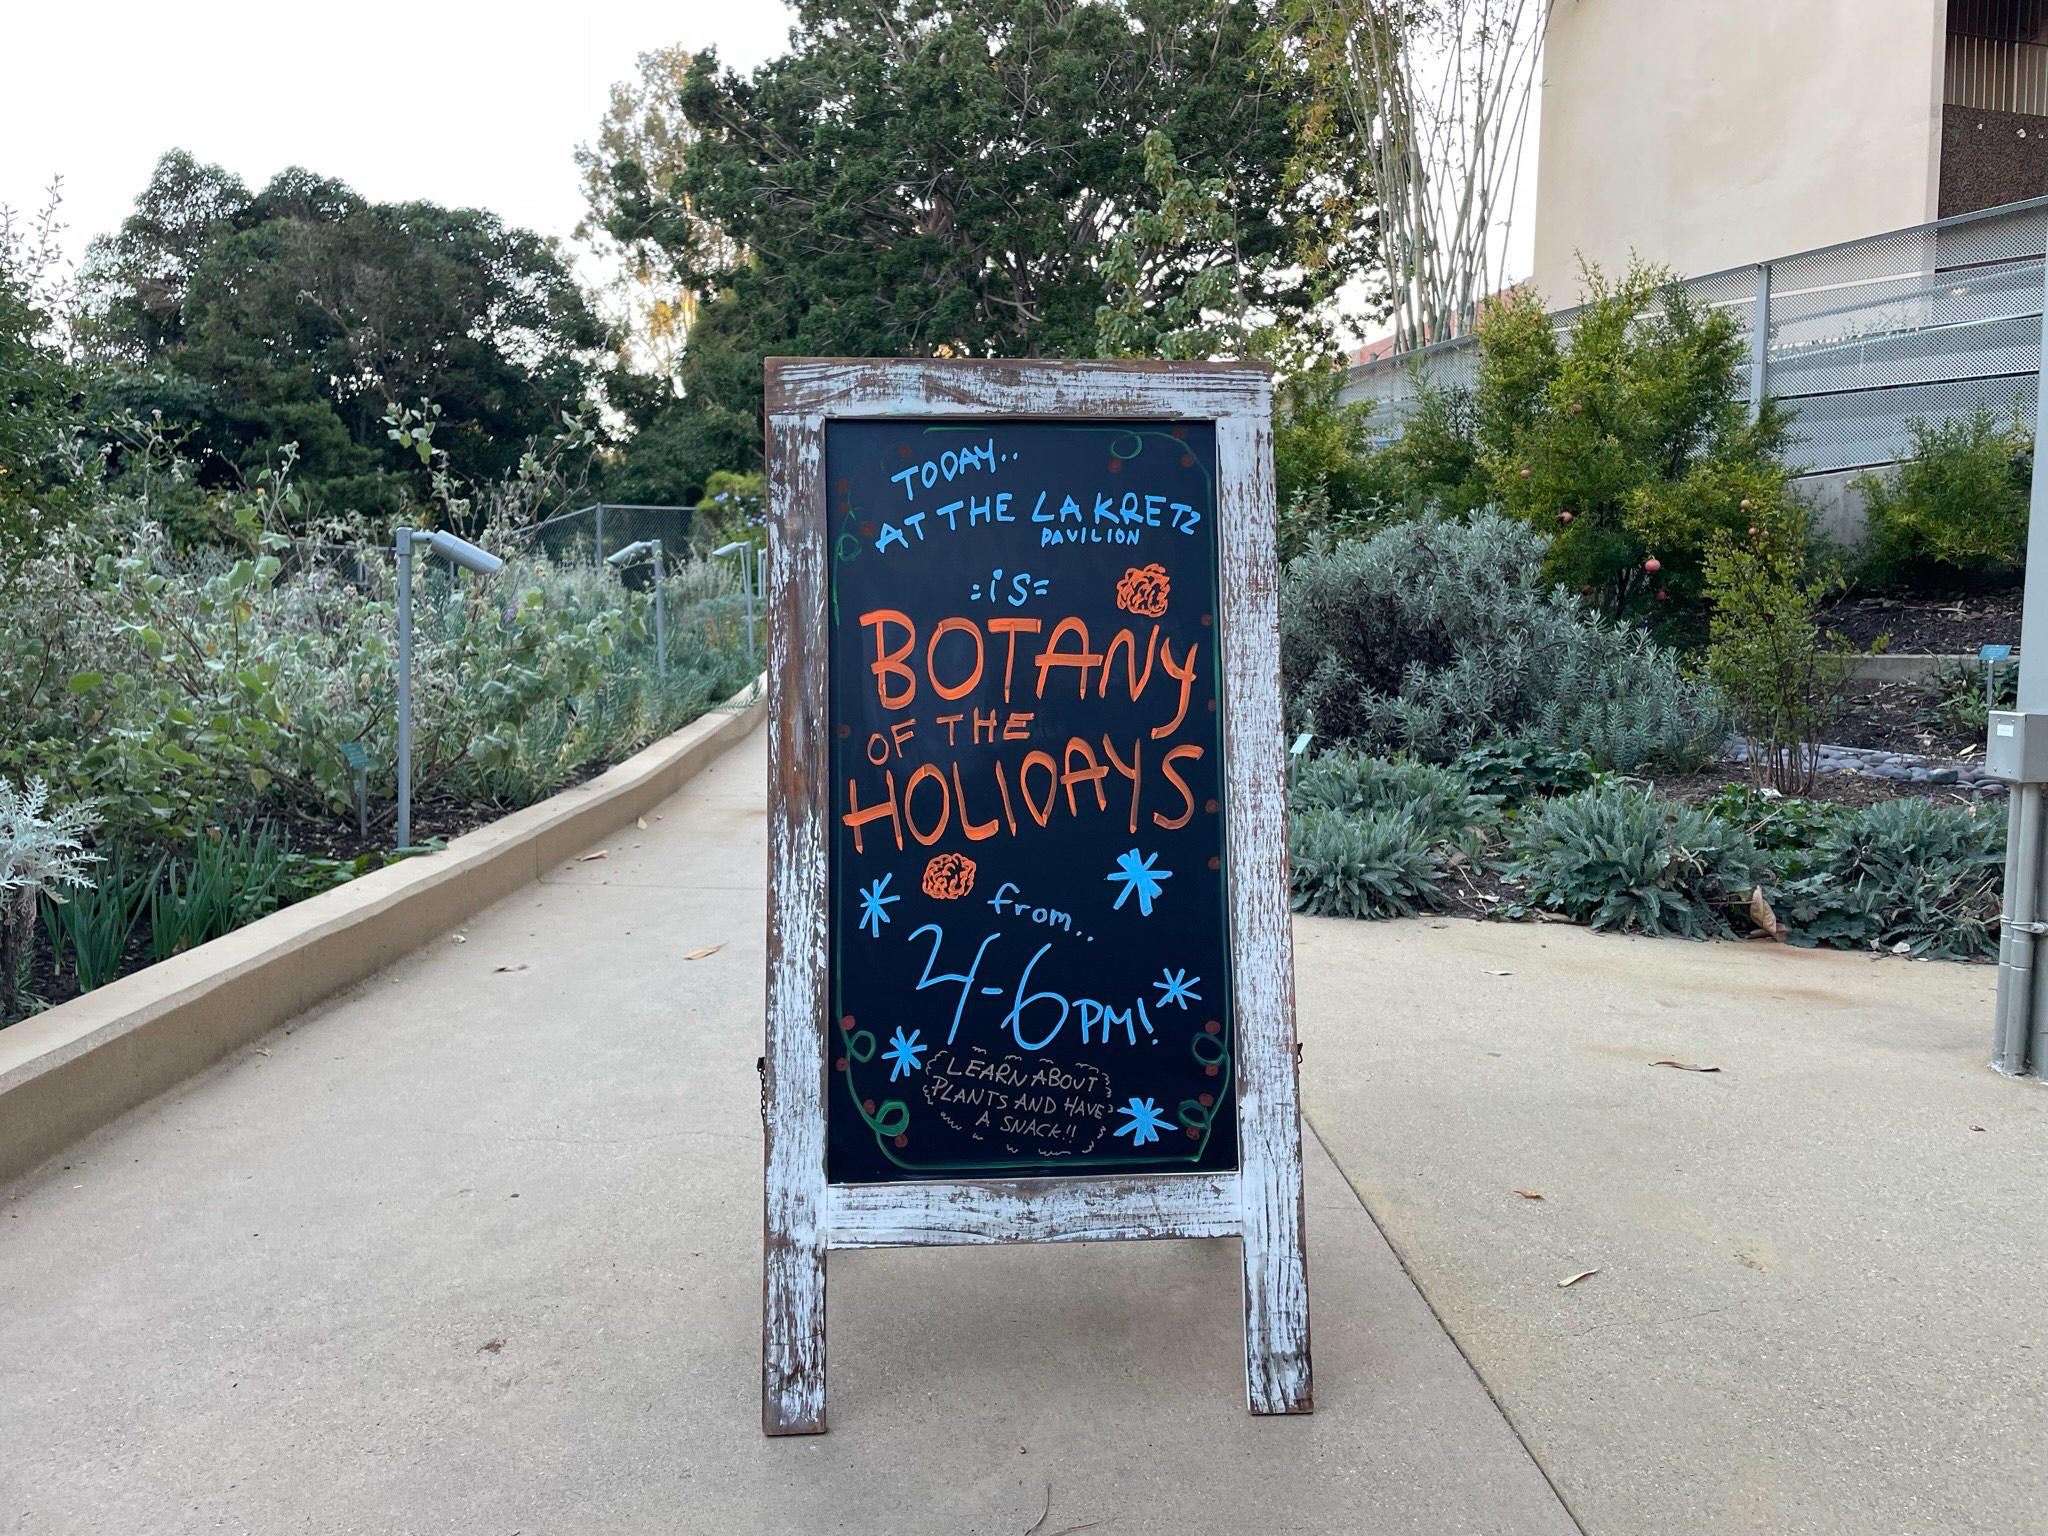 TODAY..
AT THE LA KRETZ
PAVILION
:is=
BOTANY
OF THE
HOLIDAYS
from..
4-6PM!
LEARN ABOUT
PLANTS AND HAVE
A SNACK!!